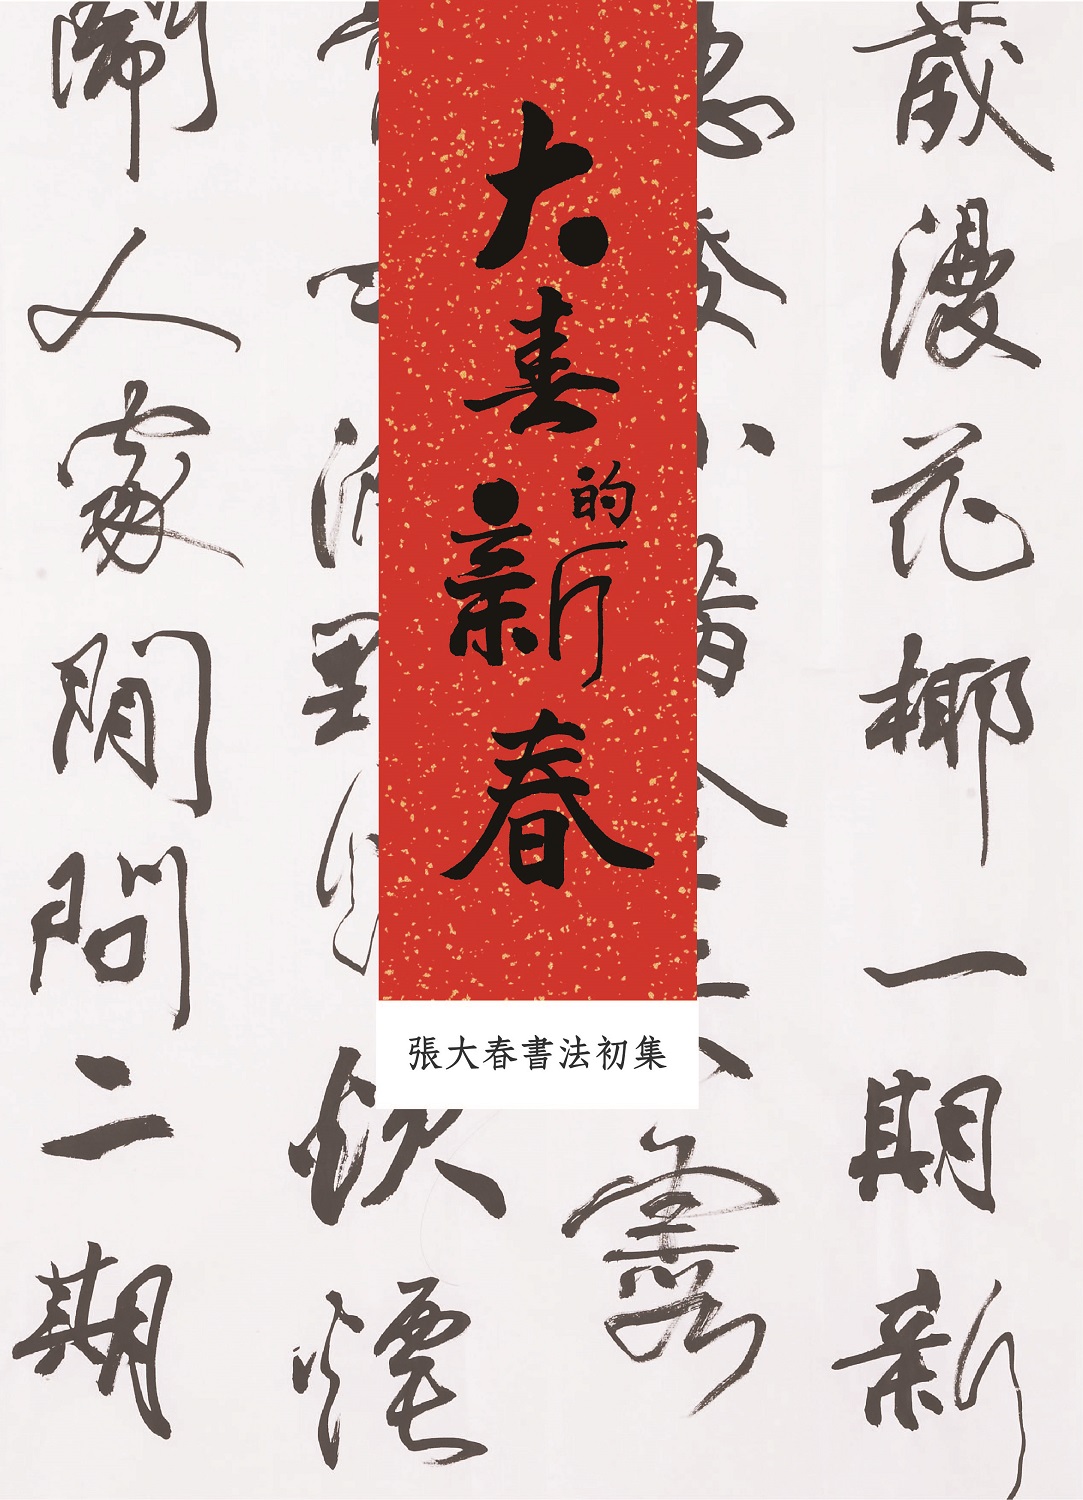 歲漫花椰一期新
大春的新春
張大春書法初集
飲煙
鬧人家閒問二期